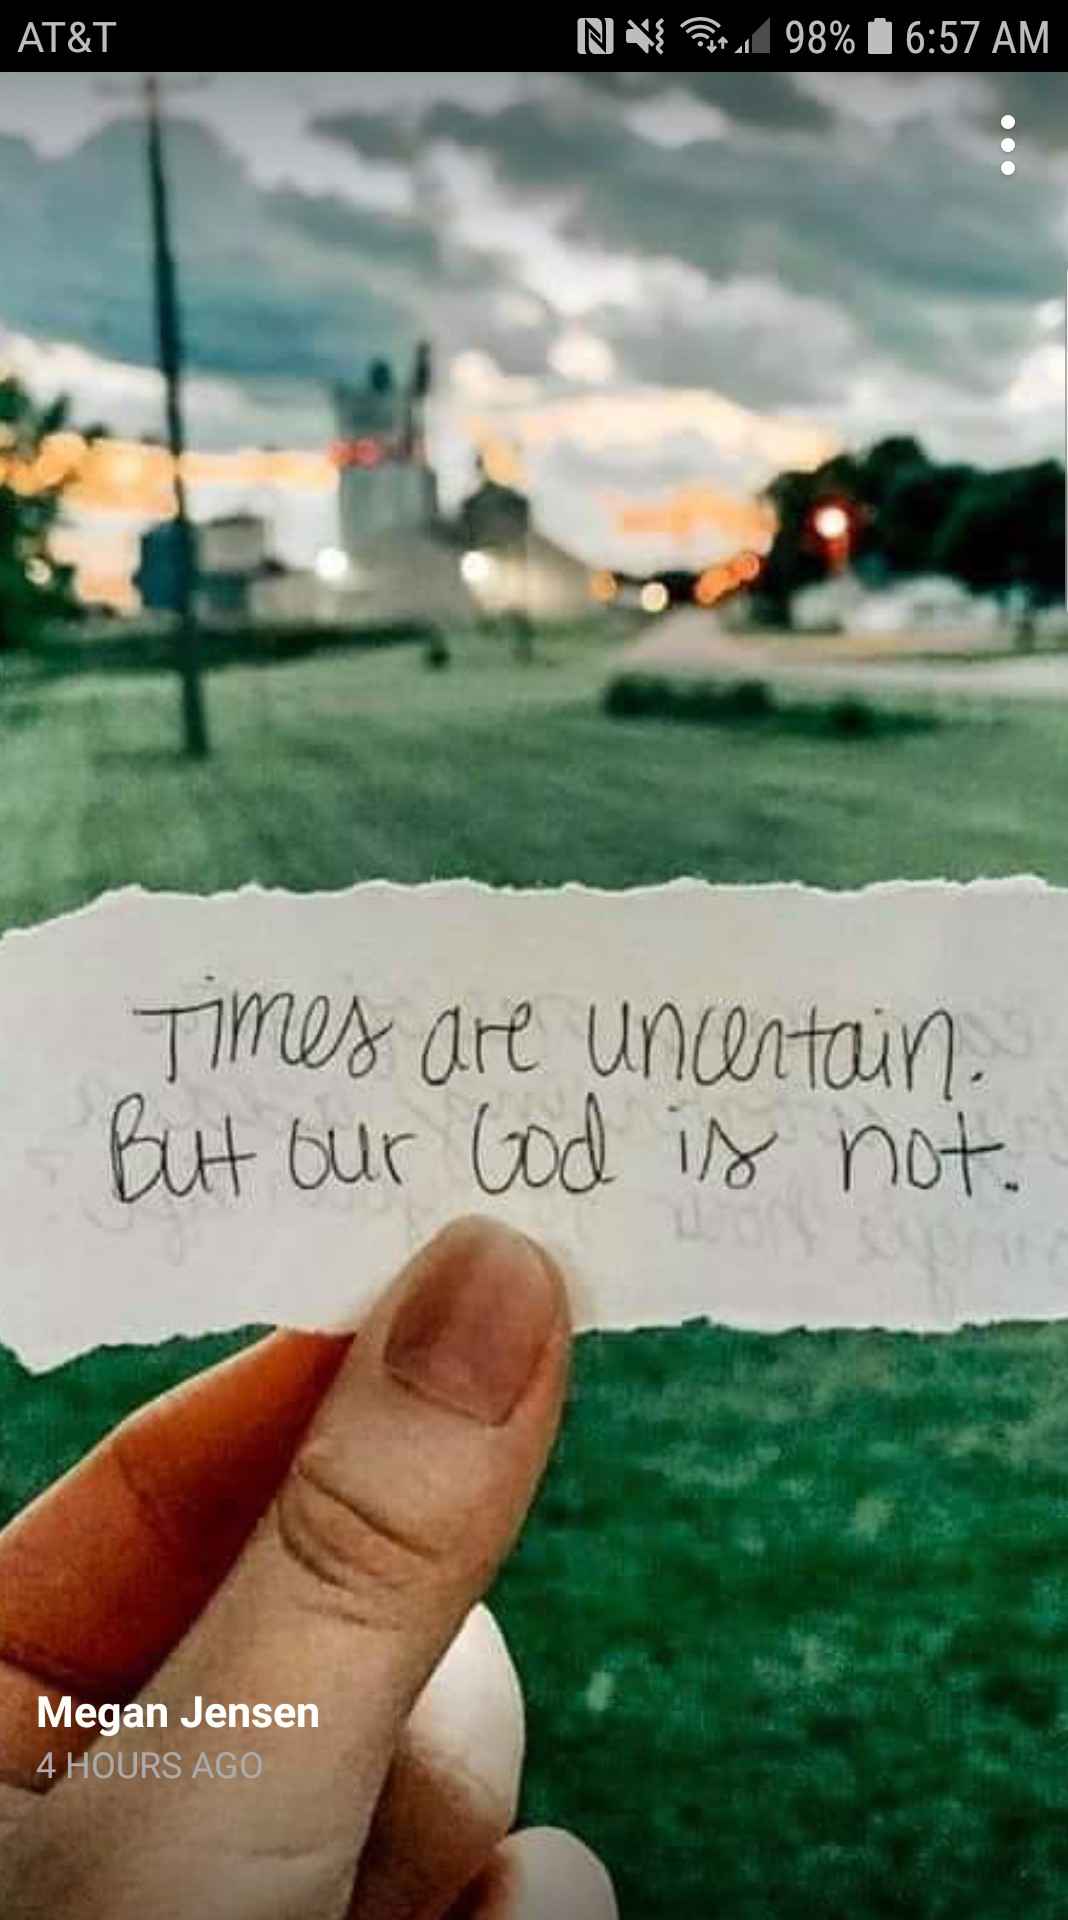 AT&T 98% 6:57 AM
Times are uncertain.
But our God is not.
Megan Jensen
4 HOURS AGO